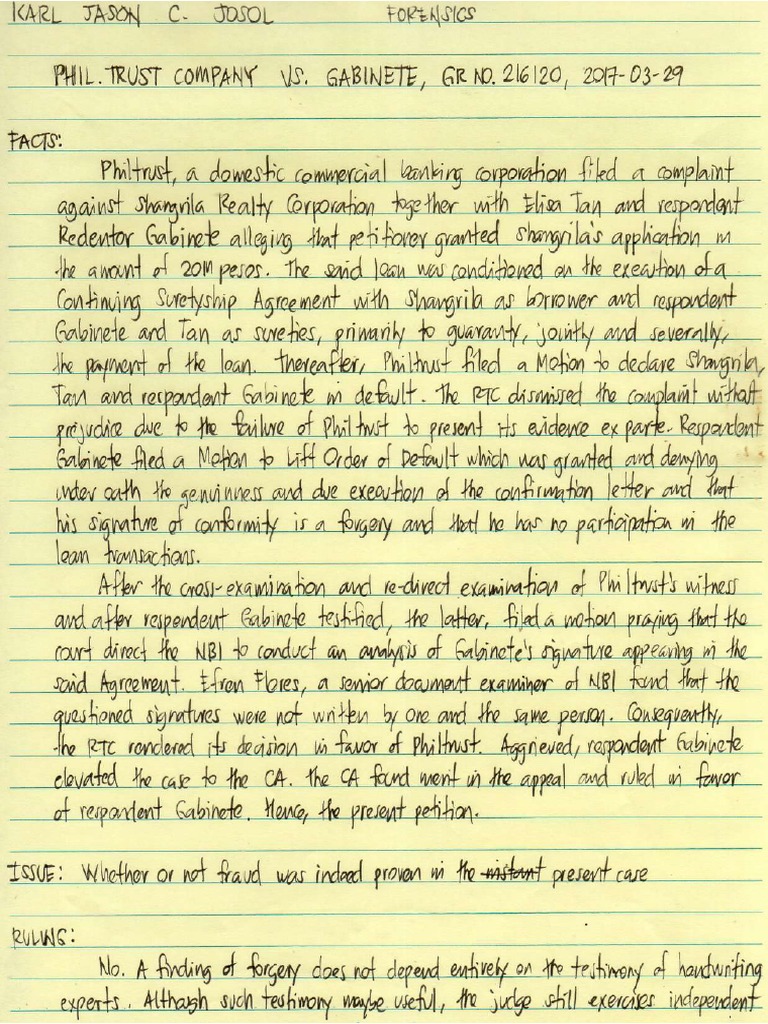 KARL JASON C. JOSOL FORENSICS
PHIL. TRUST COMPANY VS. GABINETE, GR NO. 216120, 2017-03-29
FACTS:
Philtrust, a domestic commercial banking corporation filed a complaint
against Shangrila Realty Corporation together with Elisa Tan and respondent
Redentor Gabinete alleging that petitioner granted Shangrila's application in
the amount of 20M pesos. The said loan was conditioned on the execution of a
Continuing Suretyship Agreement with Shangrila as borrower and respondent
Gabinete and Tan as sureties, primarily to guaranty, jointly and severally,
the payment of the loan. Thereafter, Philtrust filed a Motion to declare Shangrila,
Tan and respondent Gabinete in default. The RTC dismissed the complaint without
prejudice due to the failure of Philtrust to present its evidence ex parte. Respondent
Gabinete filed a Motion to Lift Order of Default which was granted and denying
under oath the genuinness and due execution of the confirmation letter and that
his signature of conformity is a forgery and that he has no participation in the
loan transactions.
After the cross-examination and re-direct examination of Philtrust's witness
and after respondent Gabinete testified, the latter, filed a motion praying that the
court direct the NBI to conduct an analysis of Gabinete's signature appearing in the
said Agreement. Efren Flores, a senior document examiner of NBI found that the
questioned signatures were not written by one and the same person. Consequently,
the RTC rendered its decision in favor of Philtrust. Aggrieved, respondent Gabinete
elevated the case to the CA. The CA found merit in the appeal and ruled in favor
of respondent Gabinete. Hence, the present petition.
ISSUE: Whether or not fraud was indeed proven in the instant present case
RULING:
No. A finding of forgery does not depend entirely on the testimony of handwriting
experts. Although such testimony maybe useful, the judge still exercises independent